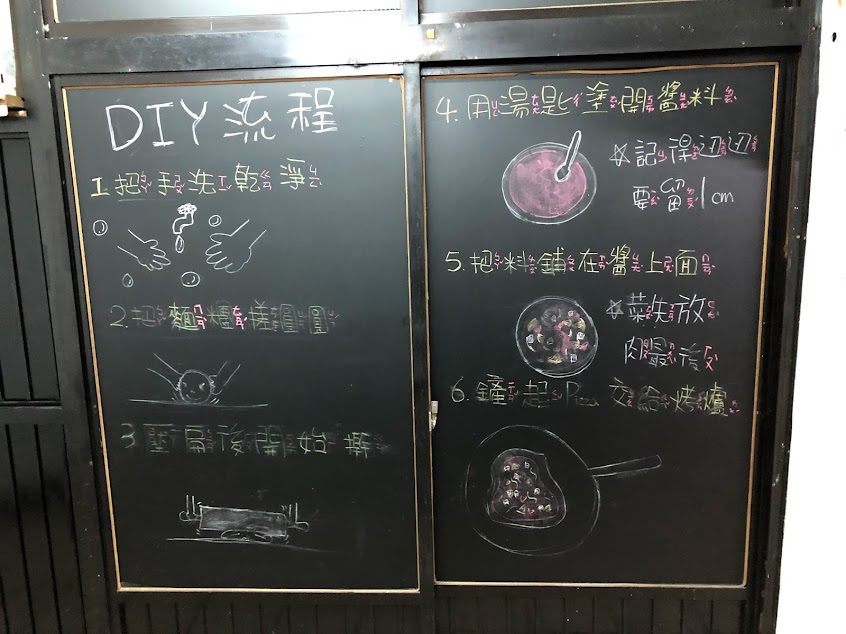 DIY 流程
1. 把手洗乾淨
2. 把麵糰搓圓圓
3 壓扁後開始擀
4. 用湯匙塗開醬料
☆記得边边
要留1cm
5. 把料鋪在醬上面
☆菜先放
肉最後
6. 鏟起Pizza 交給烤爐